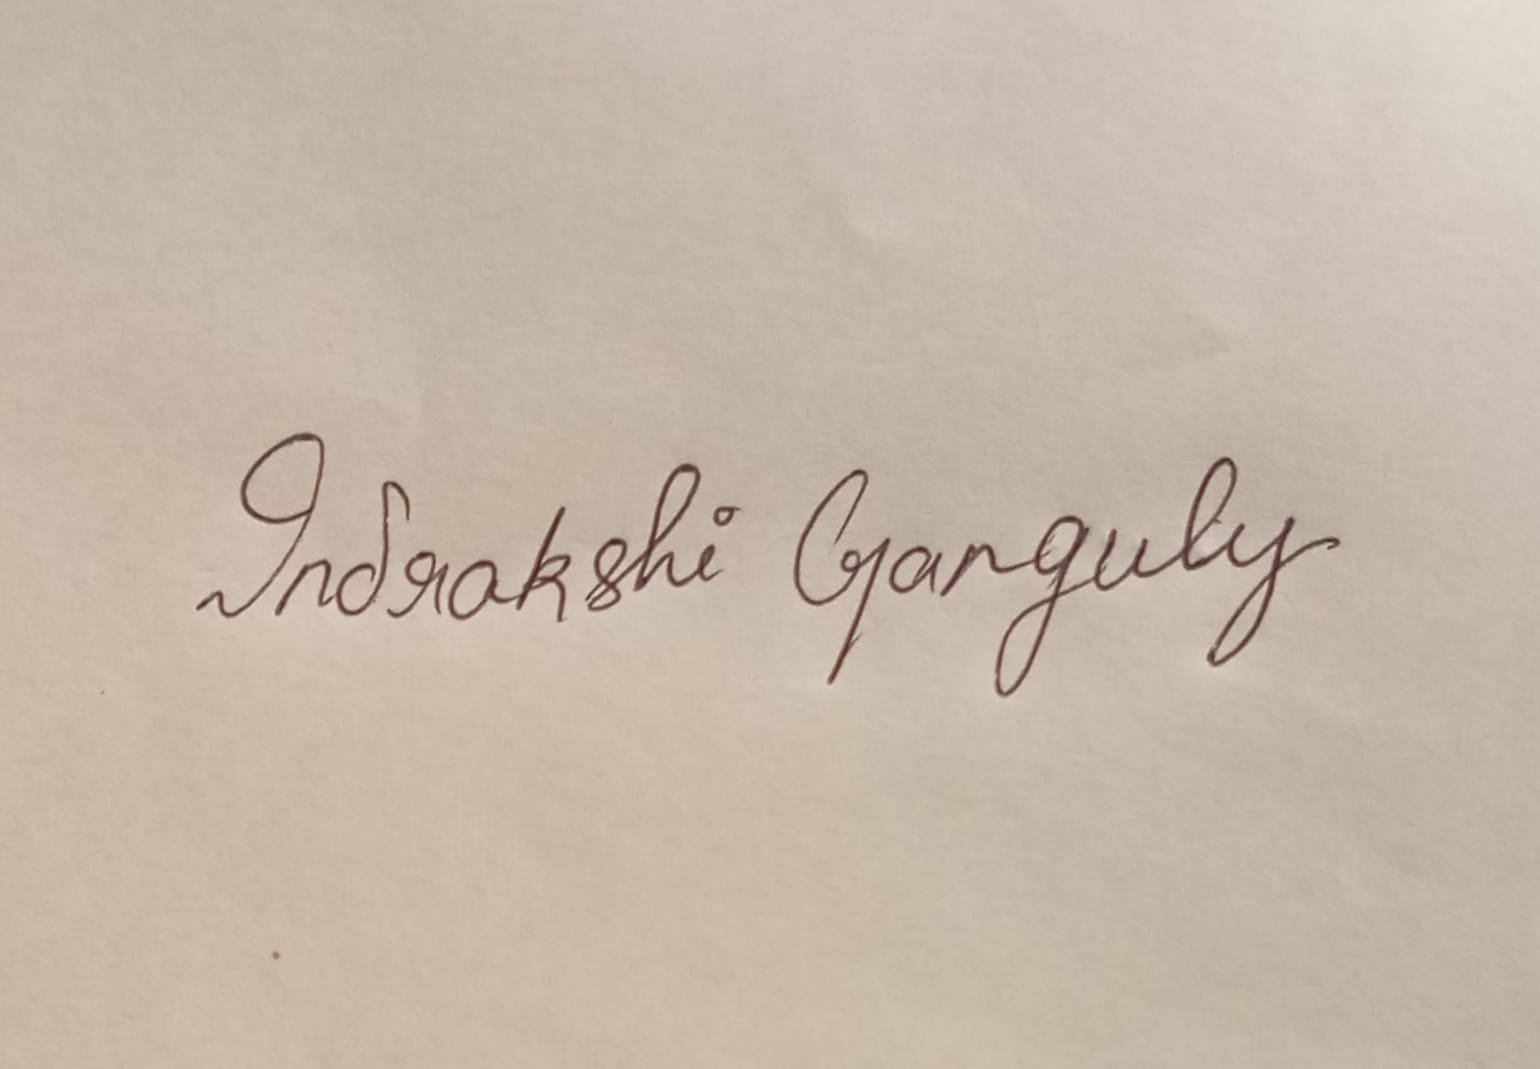 Indrakshi Ganguly